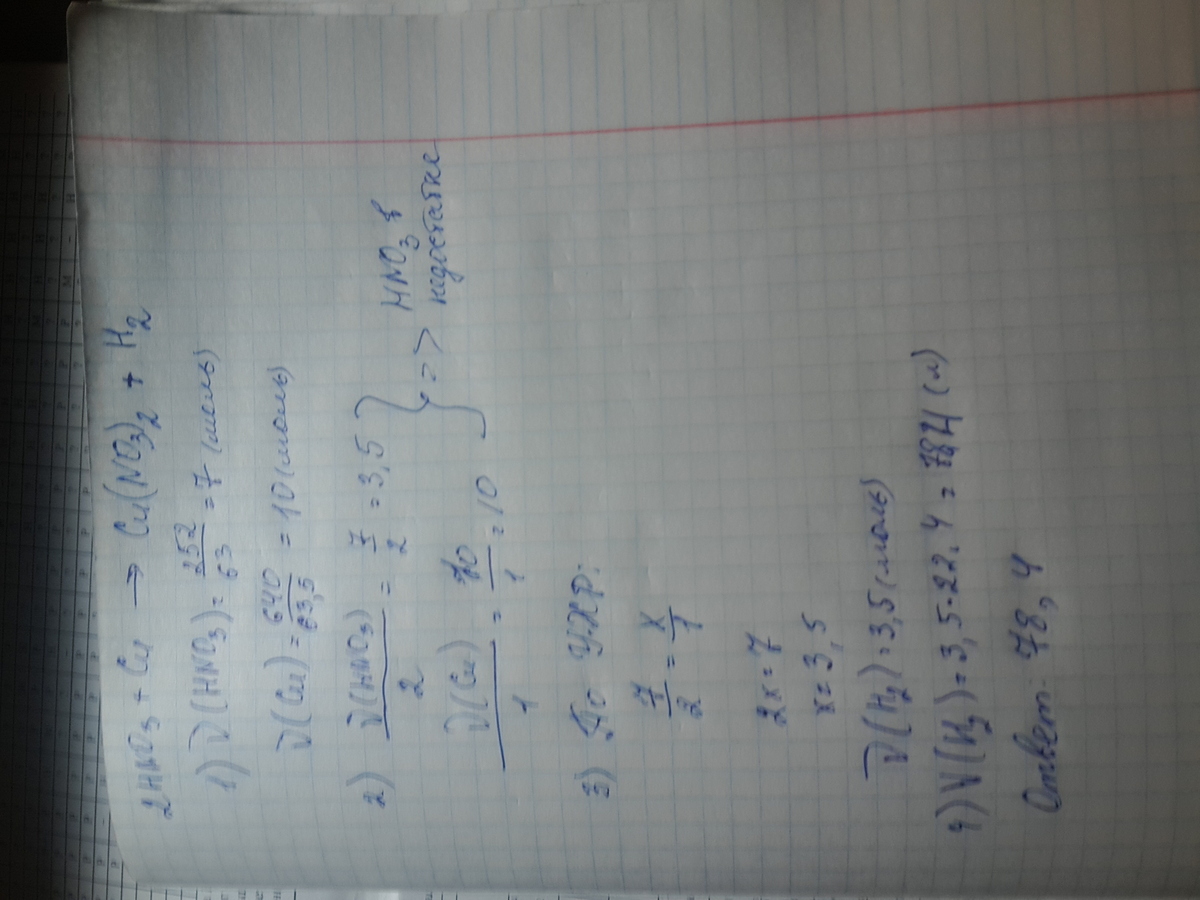 2HNO3 + Cu → Cu(NO3)2 + H2
1) ν(HNO3) = 252/63 = 7 (моль)
ν(Cu) = 640/63,5 = 10 (моль)
2) ν(HNO3)/2 = 7/2 = 3,5
ν(Cu)/1 = 10/1 = 10
} => HNO3 в
недостатке
3) По УХР:
7/2 = x/1
2x = 7
x = 3,5
ν(H2) = 3,5 (моль)
4) V(H2) = 3,5·22,4 = 78,4 (л)
Ответ: 78,4